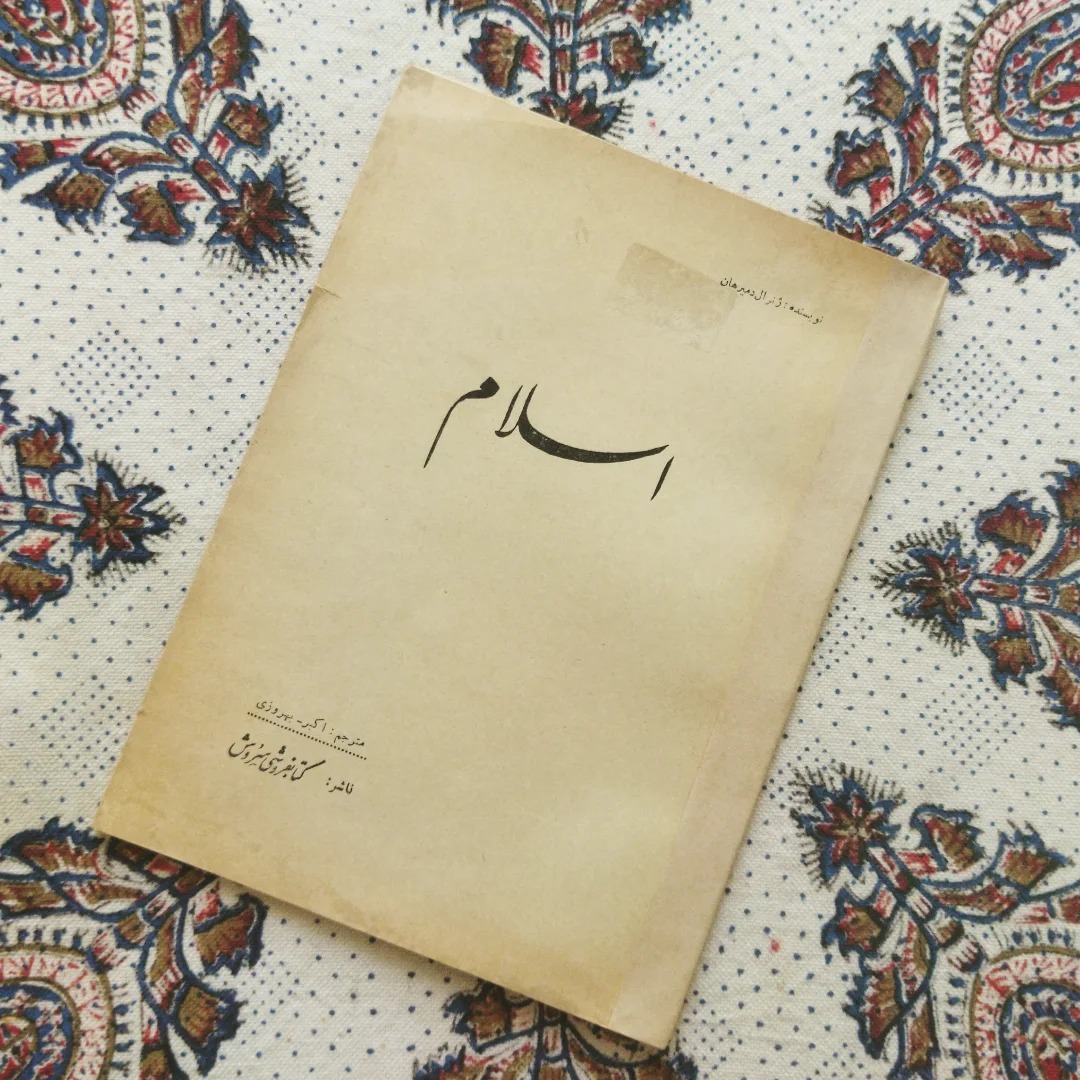 نویسنده: ژنرال دمیرهان
اسلام
مترجم: اکبر - بهروزی
ناشر: کتابفروشی سروش